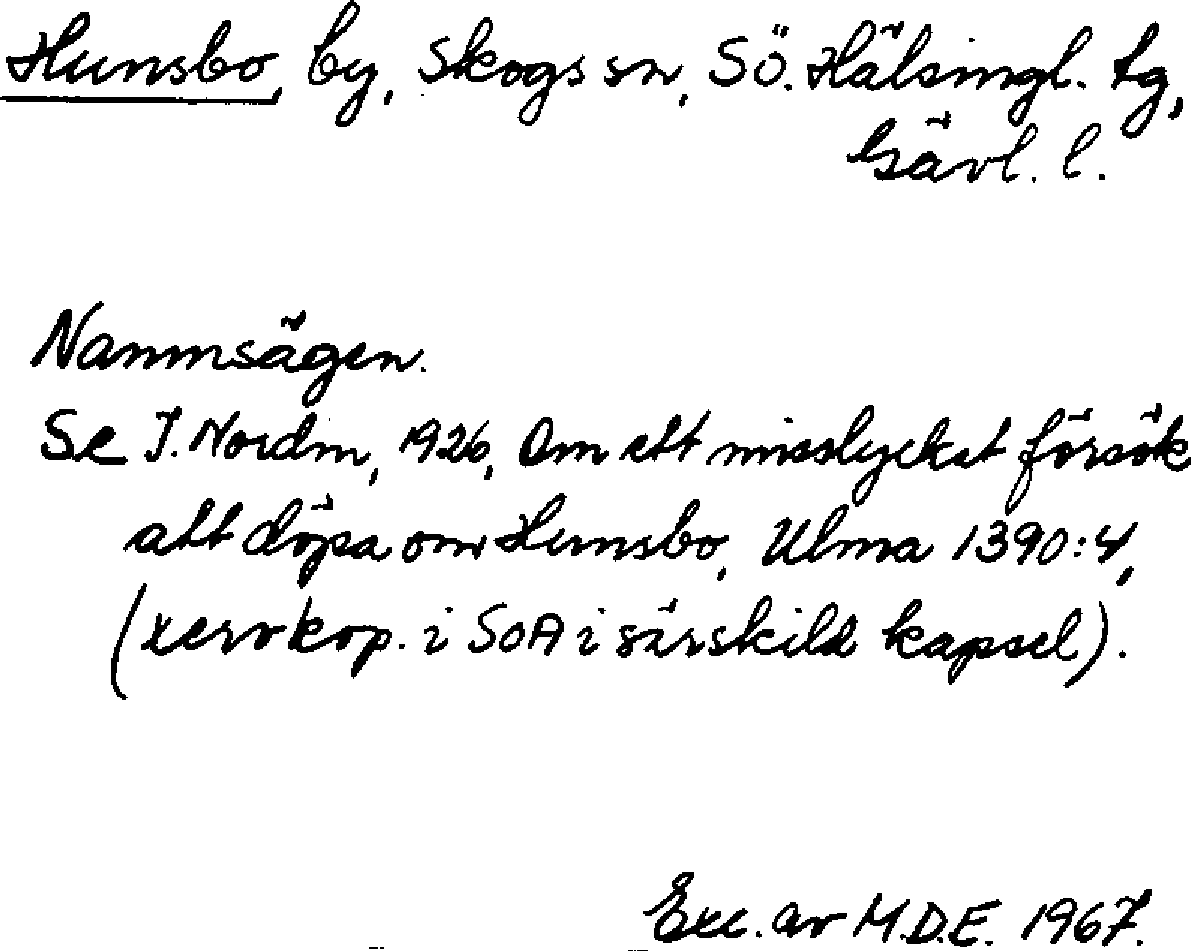 Hunsbo, by, Skogs sn, Sö. Hälsingl. tg,
Gävl. l.
Namnsägen.
Se J. Nordm, 1926, Om ett misslyckat försök
att döpa om Hunsbo, Ulma 1390:4,
(xerokop. i SOA i särskild kapsel).
Exc. av M.D.E. 1967.